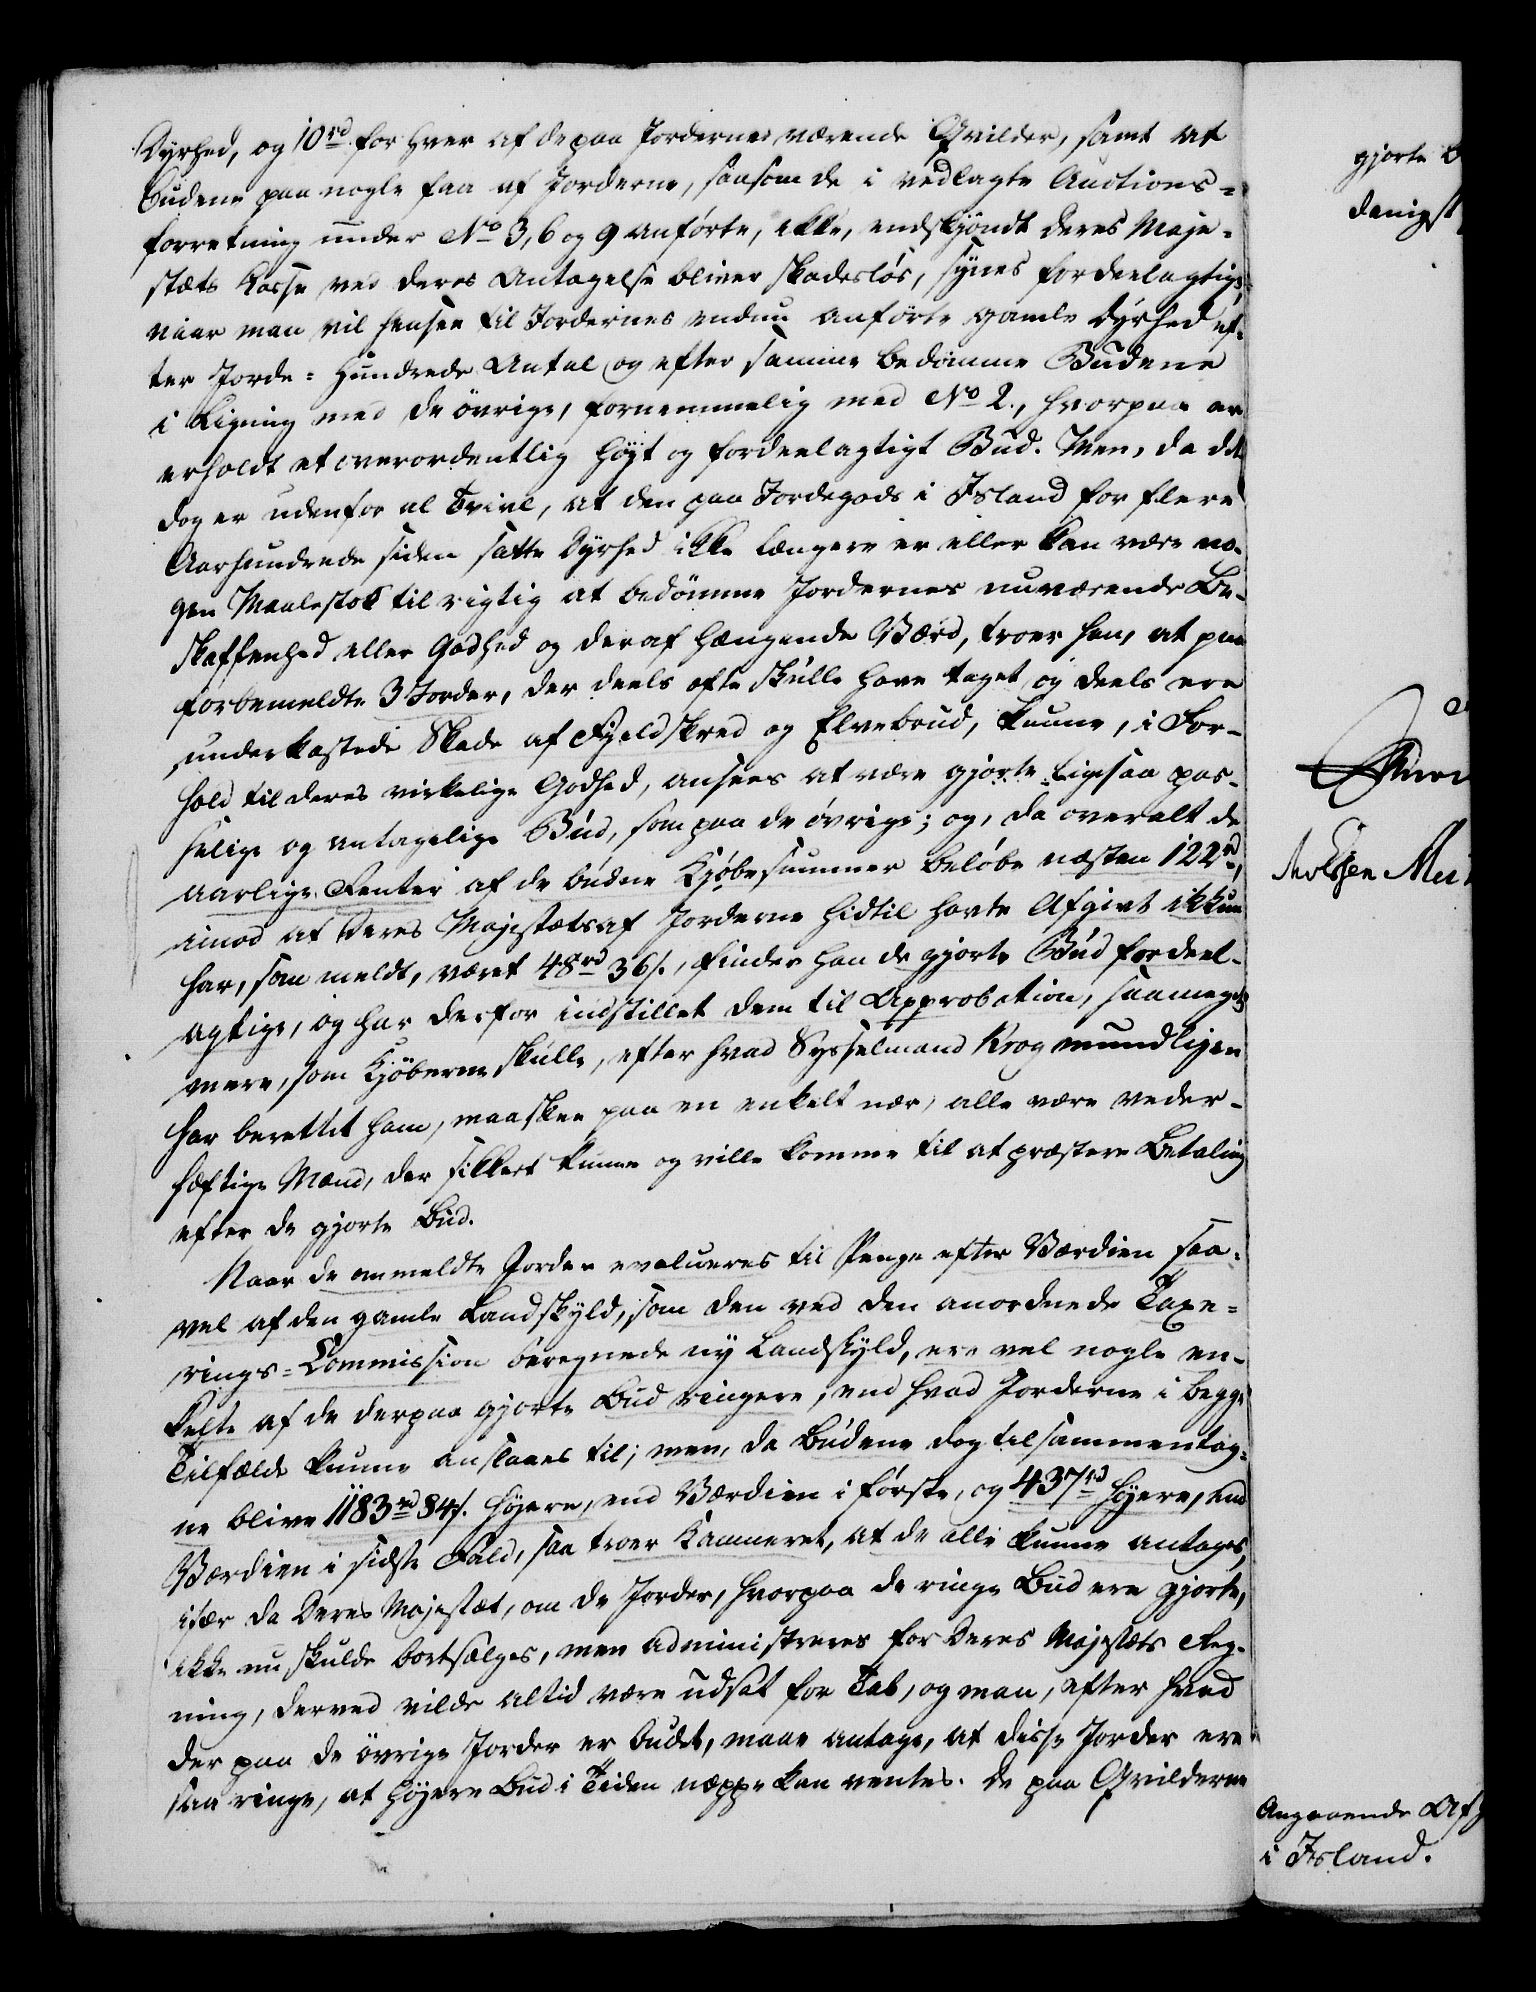 Dyrhed, og 10 rd for hver af de paa Jordernes værende Qvilder, samt at
Budene paa nogle faa af Jorderne, saasom de i vedlagte Auctions-
forretning under No 3, 6 og 9 anførte, ikke, endskjøndt Deres Maje-
stæts Kasse ved deres Antagelse bliver skadesløs, synes fordeelagtige,
naar man vil hensee til Jordernes endnu anførte gamle Dyrhed ef-
ter Jorde-Hundrede Antal og efter samme bedømme Budene
i Ligning med de øvrige, fornemmelig med No 2., hvorpaa er
erholdt et overordentlig høyt og fordeelagtigt Bud. Men, da det
dog er udenfor al Tvivl, at den paa Jordegods i Island for flere
Aarhundrede siden satte Dyrhed ikke længere er eller kan være no-
gen Maalestok til rigtig at bedømme Jordernes nuværende Be-
skaffenhed eller Godhed og deraf hængende Værd, troer han, at paa
forbemeldte 3 Jorder, der deels ofte skulle have taget og deels ere
underkastede Skade af Fjeldskred og Elvebrud, kunne, i For-
hold til deres virkelige Godhed, ansees at være gjorte ligesaa pas-
selige og antagelige Bud, som paa de øvrige; og, da overalt de
aarlige Renter af de budne Kjøbesummer beløbe næsten 122 rd,
imod at Deres Majestæts af Jorderne hidtil havte Afgivt ikkun
har, som meldt, været 48 rd 36 s., finder han de gjorte Bud fordeel-
agtige, og har derfor indstillet dem til Approbation, saameget
mere, som Kjøberne skulle, efter hvad Sysselmand Krog mundligen
har berettet ham, maaskee paa en enkelt nær, alle være veder-
hæftige Mænd, der sikkert kunne og ville komme til at præstere Betaling
efter de gjorte Bud.
Naar de ommeldte Jorder evalueres til Penge efter Værdien saa-
vel af den gamle Landskyld, som den ved den anordnede Taxe-
rings-Commission beregnede ny Landskyld, ere vel nogle en-
kelte af de derpaa gjorte Bud ringere, end hvad Jorderne i begge
Tilfælde kunne anslaaes til; men, da Budene dog tilsammentag-
ne blive 1183 rd 84 s. høyere, end Værdien i første, og 437 rd høyere, end
Værdien i sidste Fald, saa troer Kammeret, at de alle kunne antages,
især da Deres Majestæt, om de Jorder, hvorpaa de ringe Bud ere gjorte,
ikke nu skulde bortsælges, men administreres for Deres Majestæts Reg-
ning, derved vilde altid være udsat for Tab, og man, efter hvad
der paa de øvrige Jorder er budet, maae antage, at disse Jorder ere
saa ringe, at høyere Bud i Tiden neppe kan ventes. De paa Qvilderne
gjorte B
danigst
Angaaende Af
i Island.